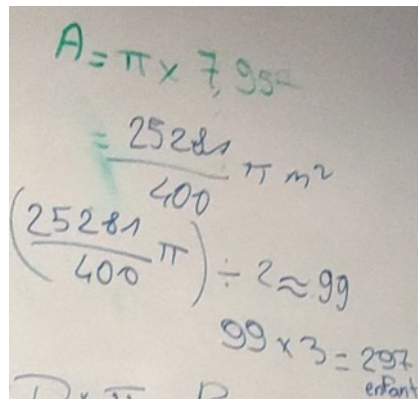 A = π × 7,95²
= 25281/400 π m²
(25281/400 π) ÷ 2 ≈ 99
99 × 3 = 297
enfant